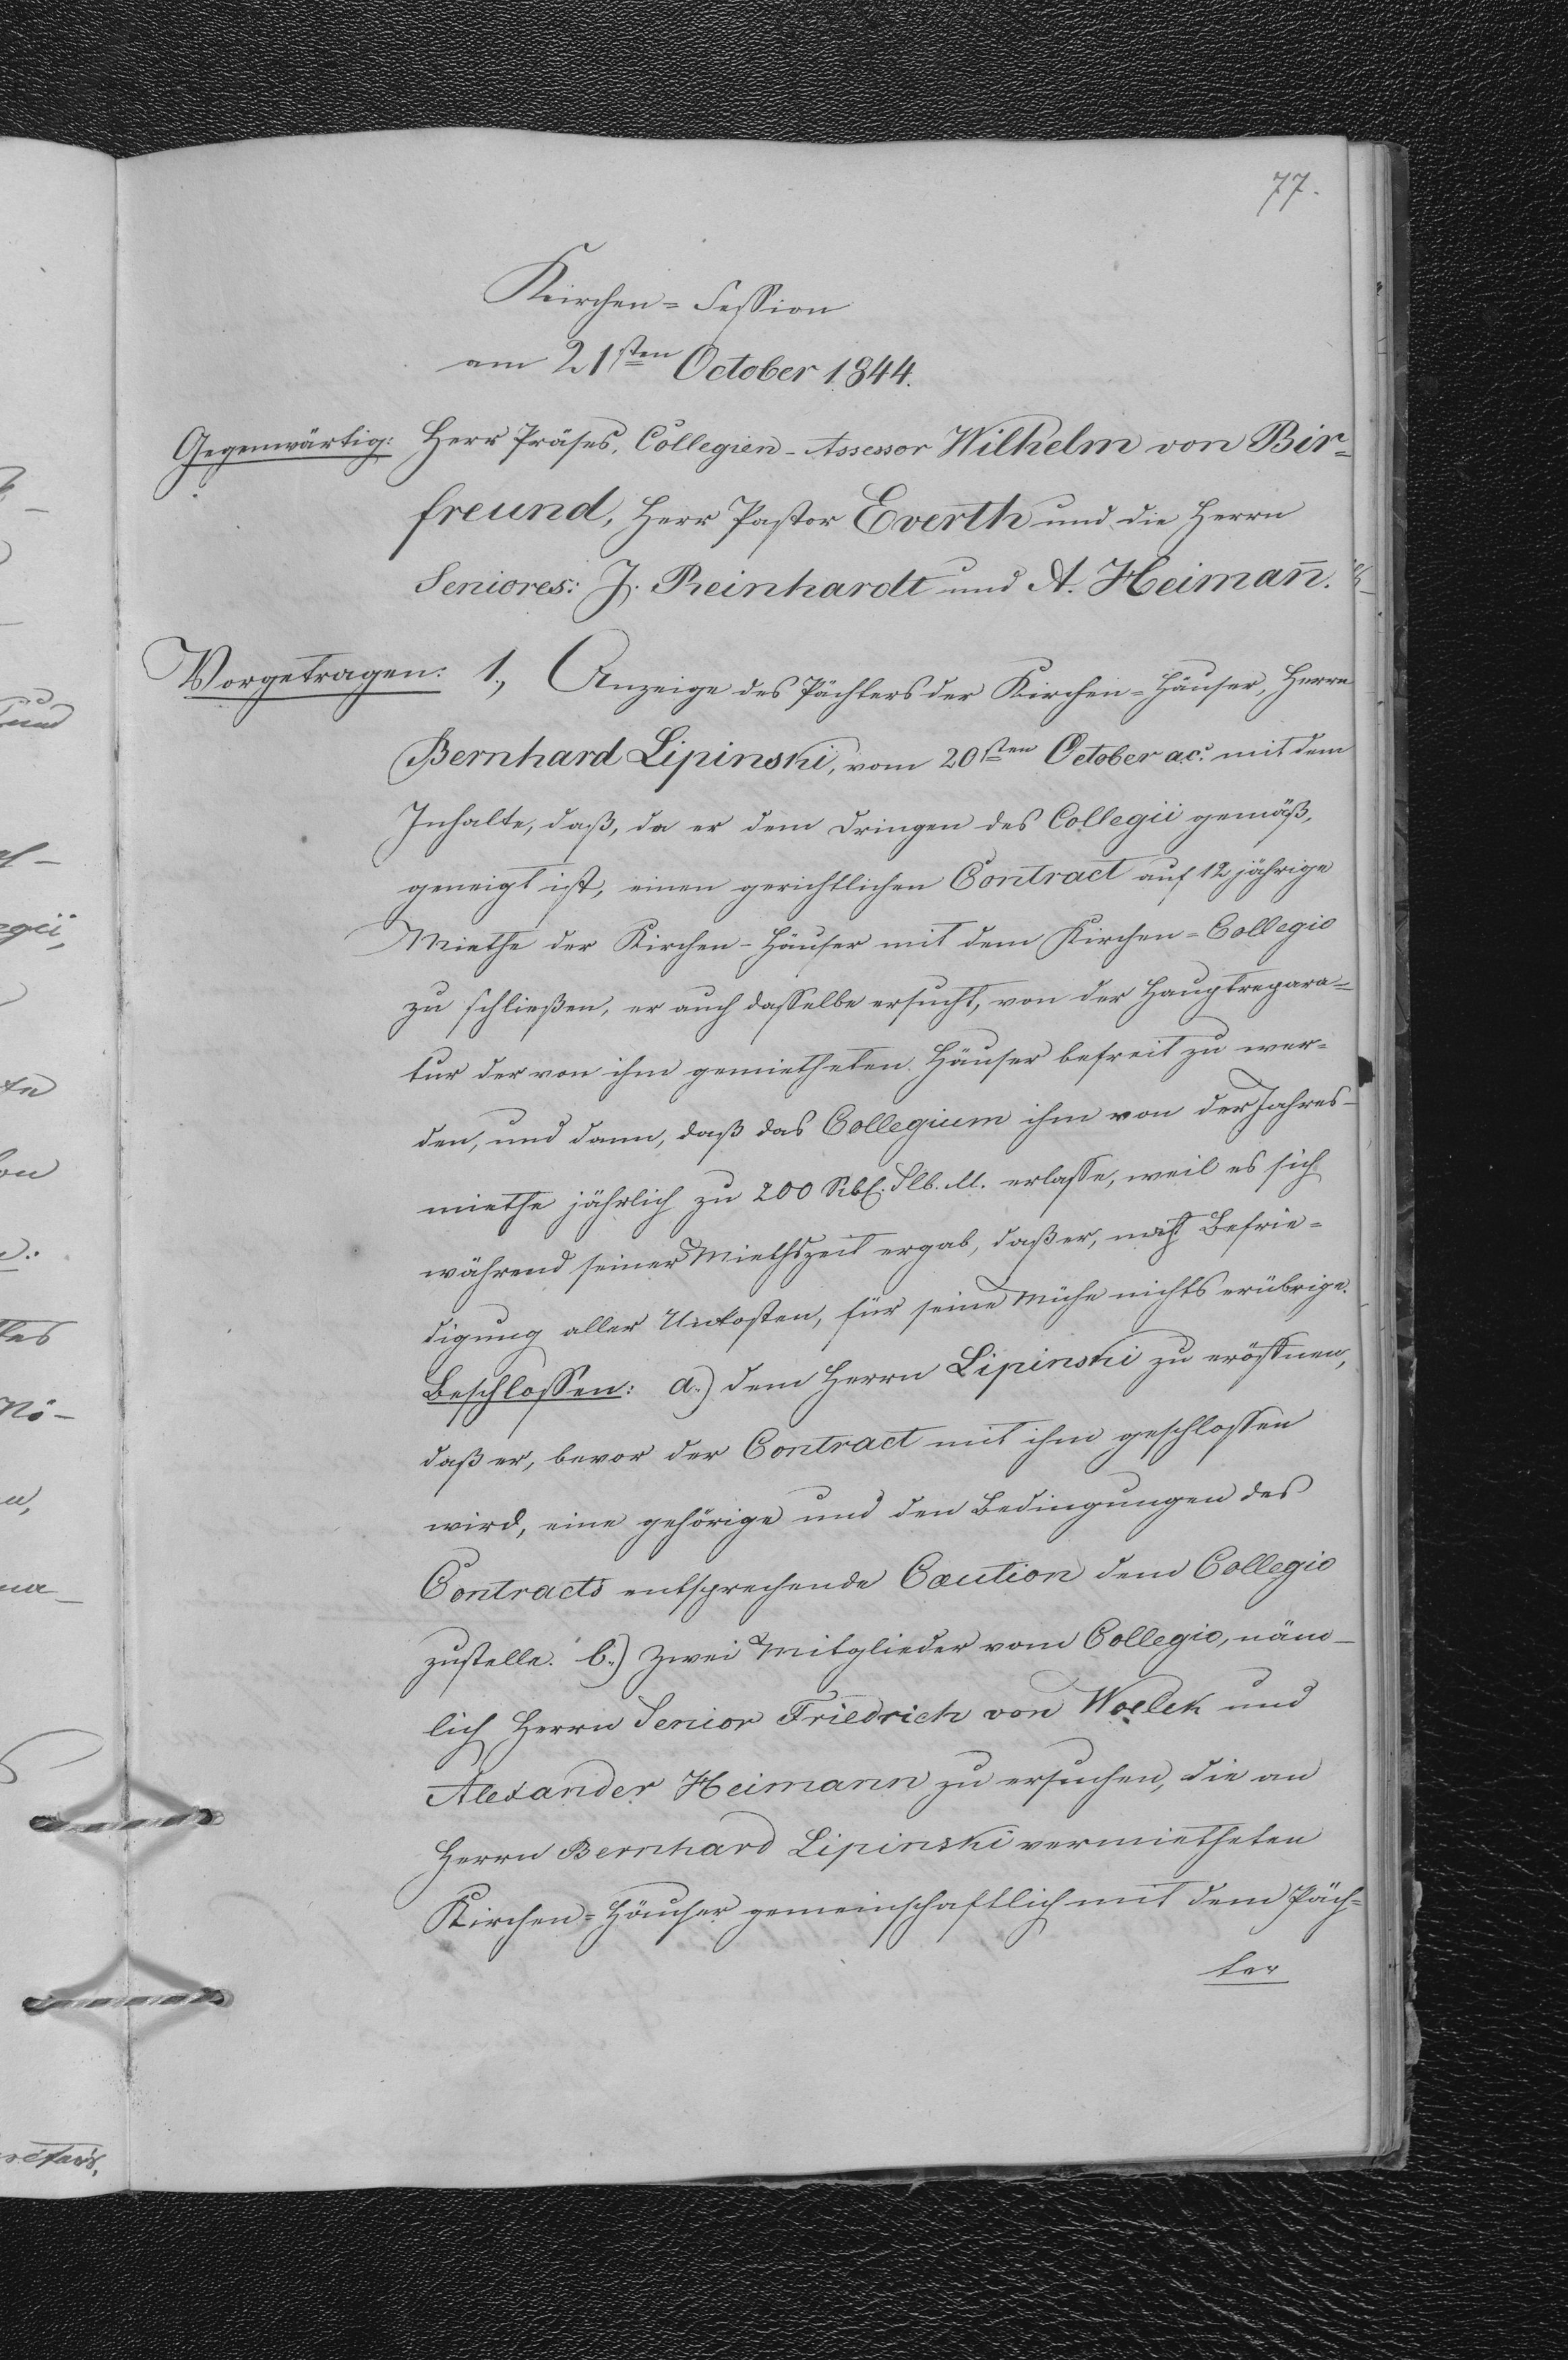 77.
Kirchen=Session
am 21sten October 1844.
Gegenwärtig: Herr Präses, Collegien-Assessor Wilhelm von Bir=
freund, Herr Pastor Everth und die Herrn
Seniores: J. Reinhardt und A. Heiman̄.
Vorgetragen: 1., Anzeige des Pächters der Kirchen=Häuser, Herrn
Bernhard Lipinski, vom 20sten October a.c. mit dem
Inhalte, daß, da er dem Dringen des Collegii gemäß,
geneigt ist, einen gerichtlichen Contract auf 12 jährige
Miethe der Kirchen-Häuser mit dem Kirchen=Collegio
zu schließen, er auch dasselbe ersucht, von der Hauptrepara=
tur der von ihm gemietheten Häuser befreit zu wer=
den, und dann, daß das Collegium ihm von der Jahres-
miethe jährlich zu 200 Rbl. Slb. M. erlasse, weil es sich
während seiner Miethszeit ergab, daß er, nach Befrie=
digung aller Unkosten, für seine Mühe nichts erübrige.
Beschlossen: a.) dem Herrn Lipinski zu eröffnen,
daß er, bevor der Contract mit ihm geschlossen
wird, eine gehörige und den Bedingungen des
Contracts entsprechende Caution dem Collegio
zustelle. b.) Zwei Mitglieder vom Collegio, näm-
lich Herrn Senior Friedrich von Woelck und
Alexander Heimann zu ersuchen, die an
Herrn Bernhard Lipinski vermietheten
Kirchen=Häuser gemeinschaftlich mit dem Päch=
ter